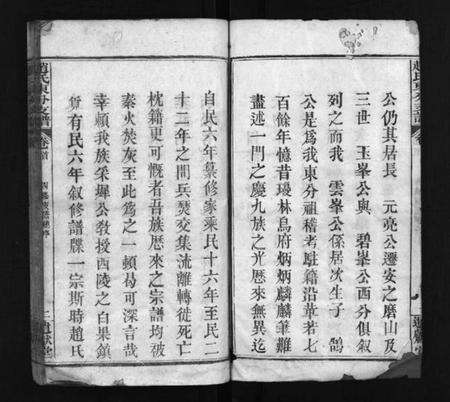 公仍其居長　元亮公遷安之磨山及
三世　玉峯公與　碧峯公酉分俱叙
列之而我　雲峯公係居次生子　鶴
公是爲我東分祖稽考駐籍沿革若七
百餘年憶昔瓊林烏府炳炳麟麟筆難
盡述一門之慶九族之光歷來無異迄
自民六年纂修家乘民十六年至民二
十二年之間兵焚交集流離轉徙死亡
枕籍更可慨者吾族歷來之宗譜均被
秦火焚灰至此爲之一頓曷可深言哉
幸賴我族採墀公教授西陵之白果鎮
賫有民六年叙修譜牒一宗斯時趙氏
趙氏東分支譜
卷首
二